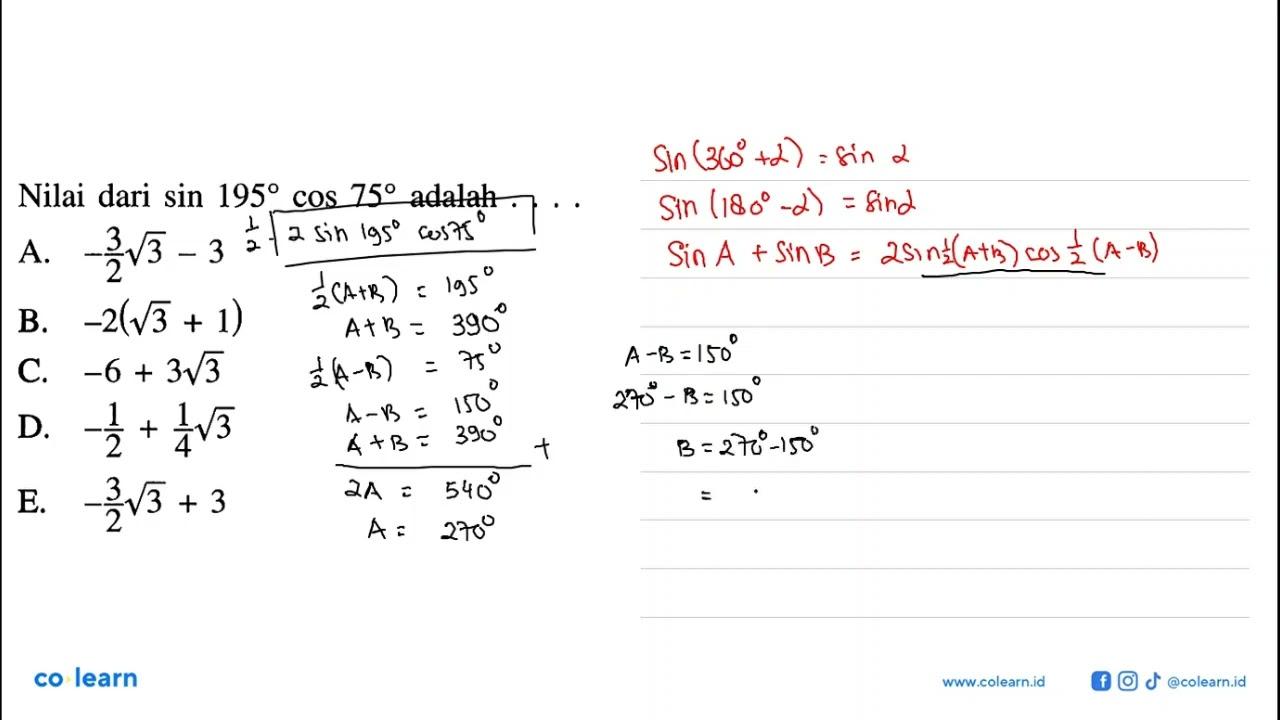 Nilai dari sin 195° cos 75° adalah . . . .
A. -3/2√3 - 3
B. -2(√3 + 1)
C. -6 + 3√3
D. -1/2 + 1/4√3
E. -3/2√3 + 3
1/2 · 2 sin 195° cos 75°
1/2(A+B) = 195°
A+B = 390°
1/2(A-B) = 75°
A-B = 150°
A+B = 390° +
2A = 540°
A = 270°
Sin (360° + α) = sin α
Sin (180° - α) = sin α
Sin A + Sin B = 2 Sin 1/2(A+B) cos 1/2(A-B)
A-B = 150°
270° - B = 150°
B = 270° - 150°
=
co learn
www.colearn.id
@colearn.id